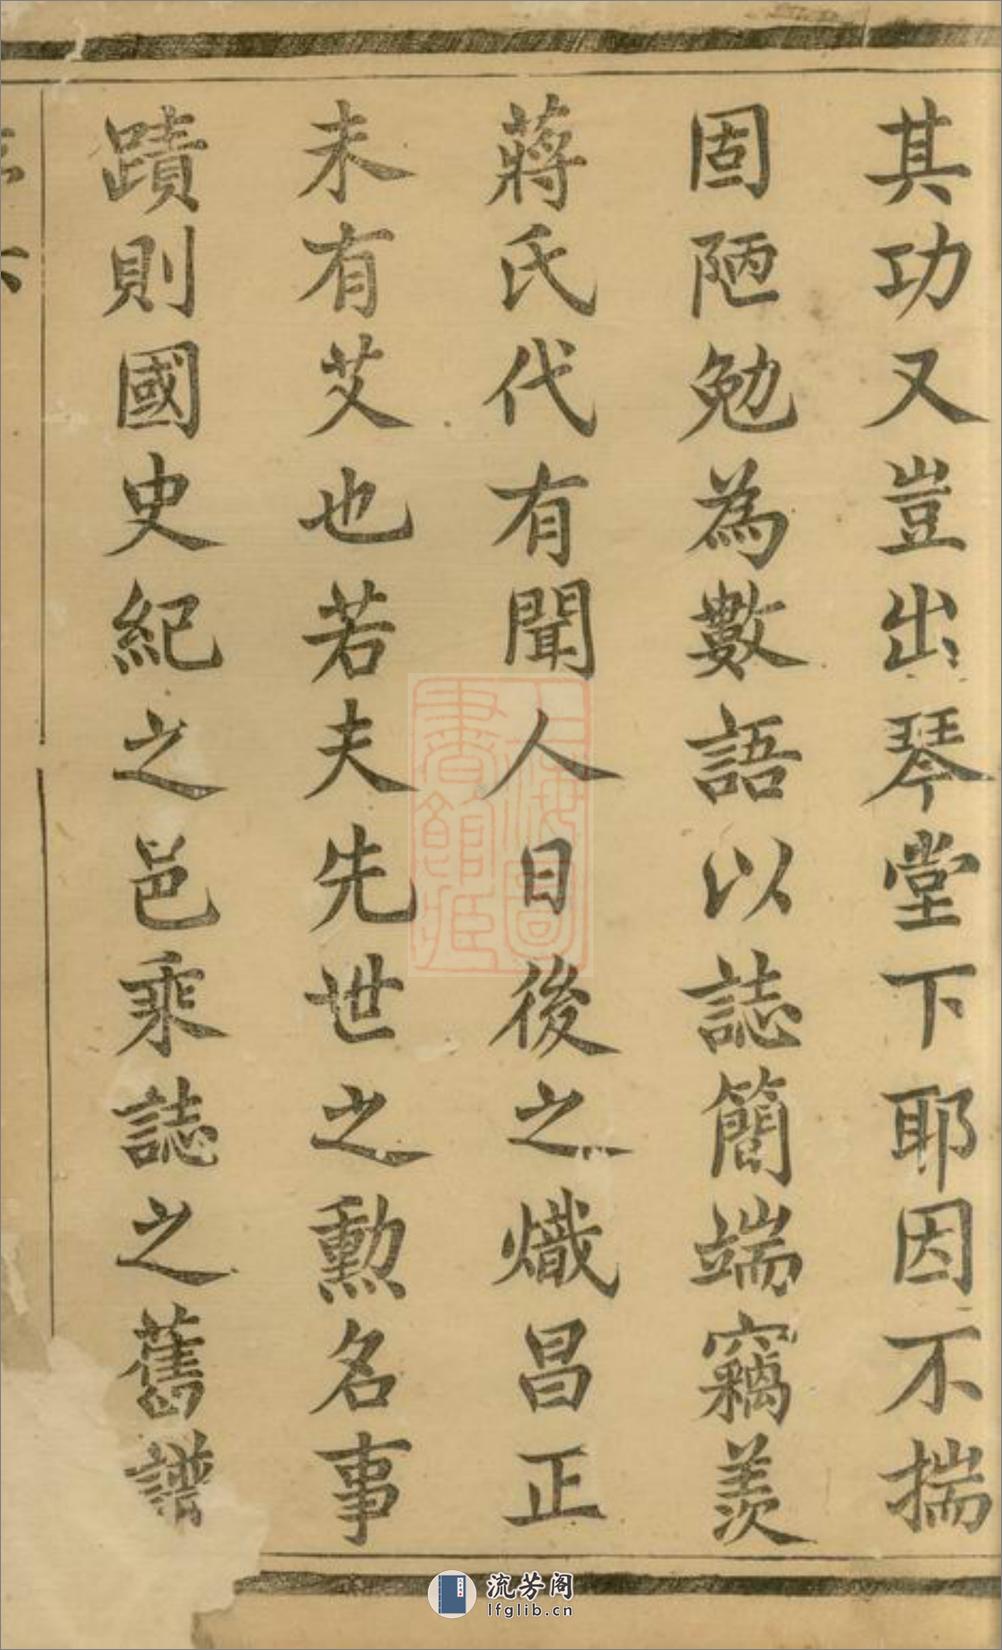 其功又豈出琴堂下耶因不揣
固陋勉為數語以誌簡端竊羨
蔣氏代有聞人日後之熾昌正
未有艾也若夫先世之勲名事
蹟則國史紀之邑乘誌之舊譜
上海圖
書館藏
流芳阁
lfglib.cn